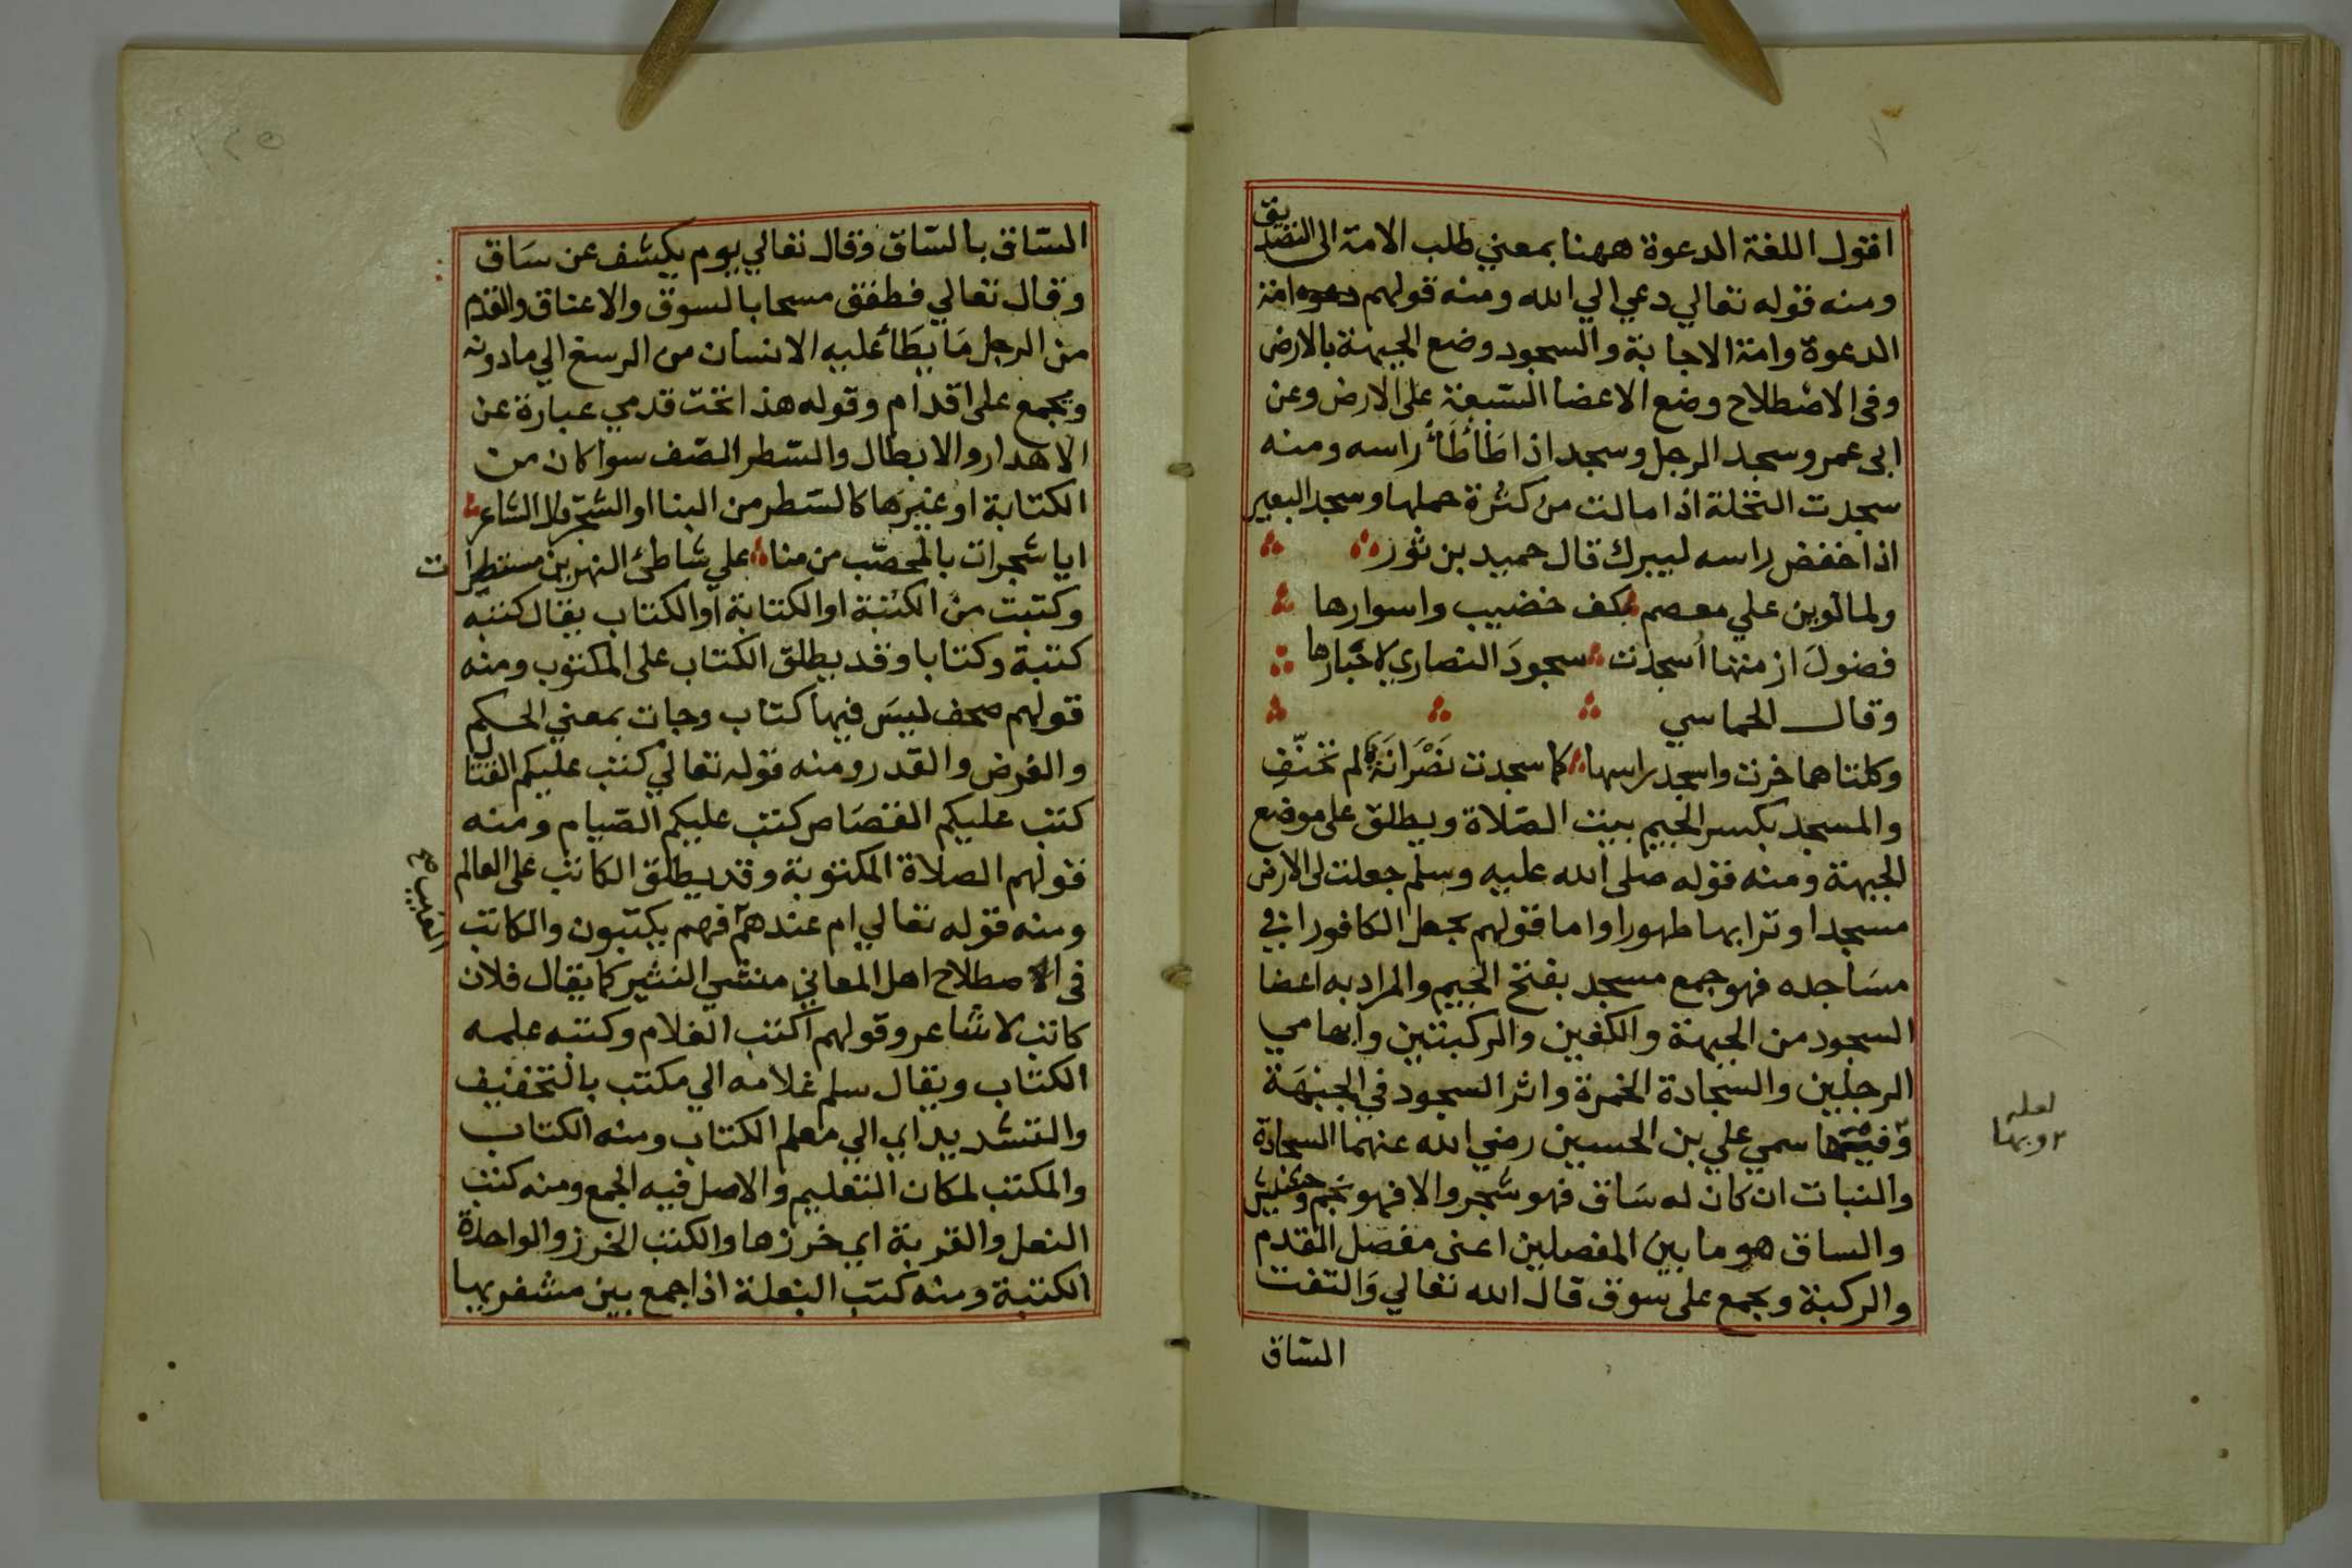 اقول اللغة الدعوة ههنا بمعني طلب الامة الى التصديق
ومنه قوله تعالي دعي الي الله ومنه قولهم دعوه امة
الدعوة وامة الاجابة والسجود وضع الجبهة بالارض
وفى الاصطلاح وضع الاعضا السبعة على الارض وعن
ابى عمرو سجد الرجل وسجد اذا طَأْطَأَ راسه ومنه
سجدت النخلة اذا مالت من كثرة حملها وسجد البعير
اذا خفض راسه ليبرك قال حميد بن ثور
ولما لوين علي معصم بكف خضيب واسوارها
فضولَ ازمتها اُسجدت سجودَ النصاري لاحبارها
وقال الحماسي
وكلتاهما خرت واسجد راسها كما سجدت نَصْرَانَة لم تحنّفِ
والمسجد بكسر الجيم بيت الصّلاة ويطلق على موضع
الجبهة ومنه قوله صلى الله عليه وسلم جعلت لى الارض
مسجدا وترابها طهورا واما قولهم يجعل الكافور اي في
مسَاجده فهو جمع مسجد بفتح الجيم والمراد به اعضا
السجود من الجبهة والكفين والركبتين وابهامي
الرجلين والسّجادة الخمرة واثر السجود في الجبهَة
سمي علي بن الحسين رضي الله عنهما السجادة
والنبات ان كان له سَاق فهو شجر والا فهو نجم وحشيش
والساق هو ما بين المفصلين اعنى مفصل القدم
والركبة ويجمع على سوق قال الله تعالي وَالتفت
الساق
لعله
وبها
الساق بالسّاق وقال تعالي يوم يكشف عن سَاق
وقال تعالي فطفق مسحا بالسوق والاعناق والقدم
من الرجل مَا يَطَأ عليه الانسان من الرسغ الي ما دونه
ويجمع على اقدام وقوله هذا تحت قدمي عبارة عن
الاهدار والابطال والسّطر الصّف سوا كان من
الكتابة او غيرها كالسّطر من البنا او الشجر قال الشاعر
ايا شجرات بالمحصّب من منا علي شاطئ النهرين مستطرات
وكتبت من الكتبة او الكتابة او الكتاب يقال كتبه
كتبة وكتابا وقد يطلق الكتاب على المكتوب ومنه
قولهم صحف ليسَ فيها كتاب وجات بمعني الحكم
والفرض والقدر ومنه قوله تعالي كتب عليكم القتال
كتب عليكم القصَاص كتب عليكم الصّيام ومنه
قولهم الصلاة المكتوبة وقد يطلق الكاتب على العالم
ومنه قوله تعالي ام عندهم فهم يكتبون والكاتب
الغيب صح
فى الاصطلاح اهل المعاني منشي النثير كما يقال فلان
كاتب لا شاعر وقولهم اكتب الغلام وكتبه علمه
الكتاب ويقال سلم غلامه الي مكتب بالتخفيف
والتشديد اي الي معلم الكتاب ومنه الكتاب
والمكتب لمكان التعليم والاصل فيه الجمع ومنه كتب
النعل والقربة اي خرزها والكتب الخرز والواحدة
الكتبة ومنه كتب البغلة اذا جمع بين مشفريها